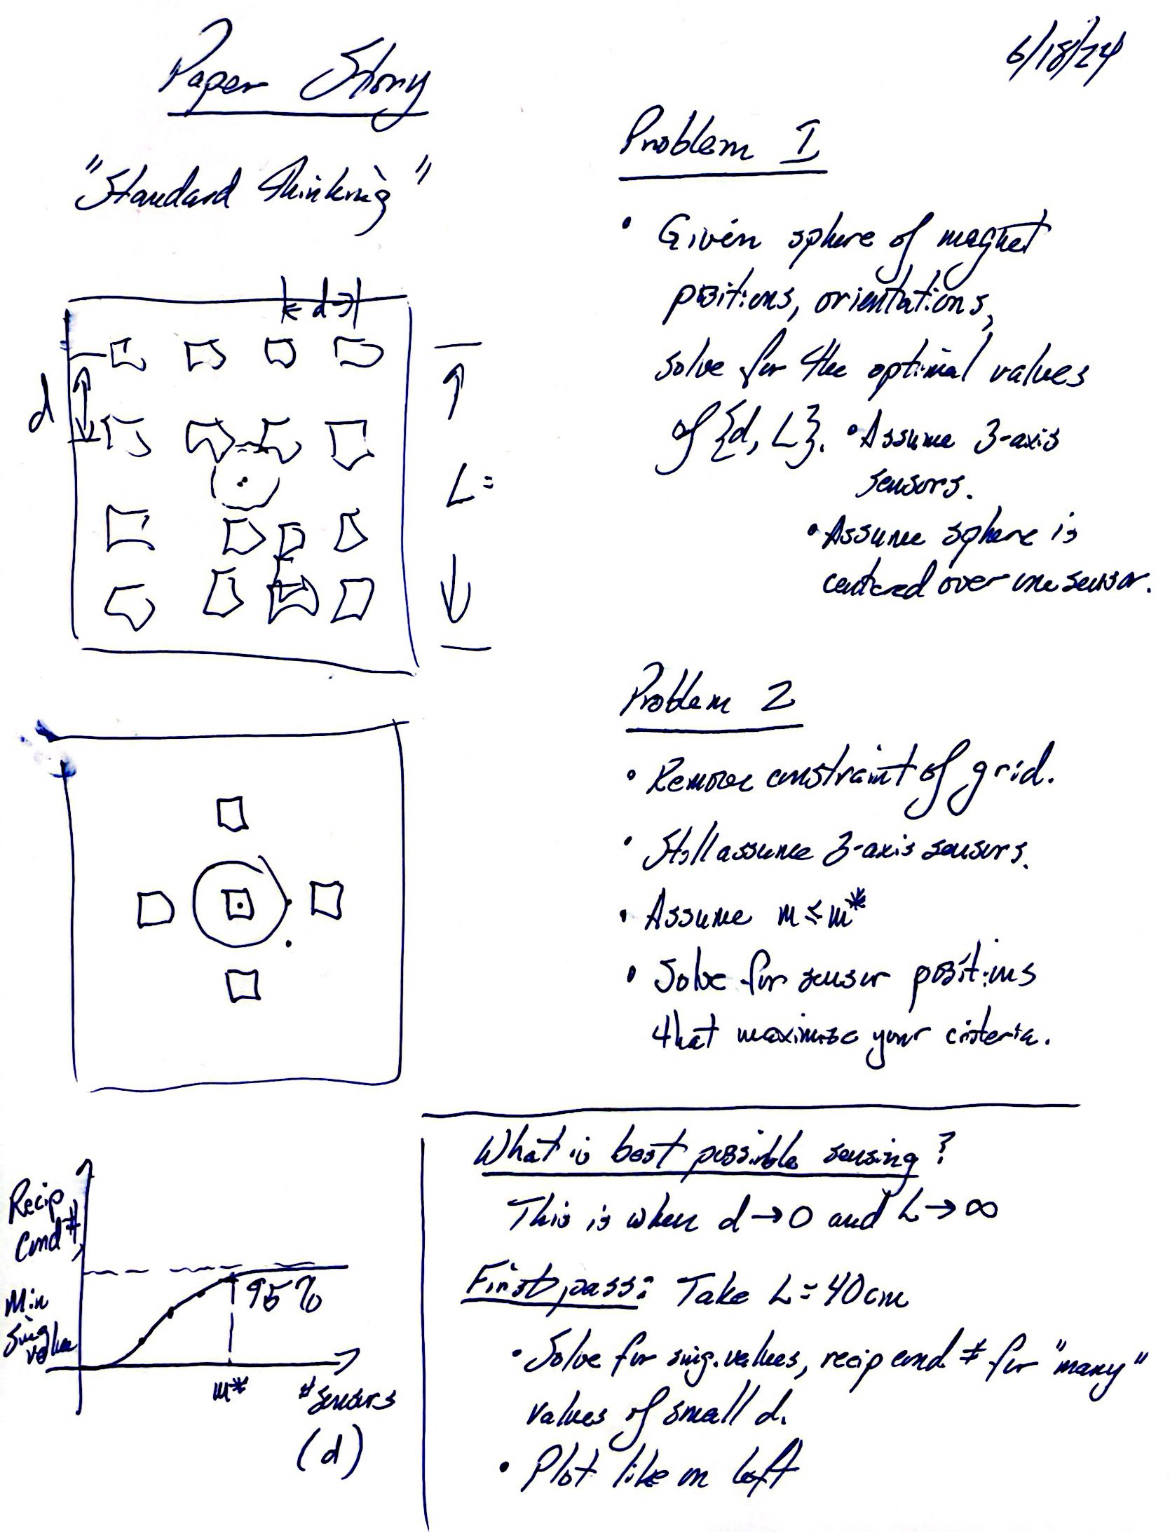 Paper Story
6/18/24
"Standard thinking"
d
d
L =
Problem 1
• Given sphere of magnet
positions, orientations,
solve for the optimal values
of {d, L}. • Assume 3-axis
sensors.
• Assume sphere is
centered over one sensor.
Problem 2
• Remove constraint of grid.
• Still assume 3-axis sensors.
• Assume m ≤ m*
• Solve for sensor positions
that maximize your criteria.
What is best possible sensing?
This is when d → 0 and L → ∞
First pass: Take L = 40cm
• Solve for sing. values, recip cond # for "many"
values of small d.
• Plot like on left
Recip
Cond #,
Min
Sing
value
95%
m*
# sensors
(d)